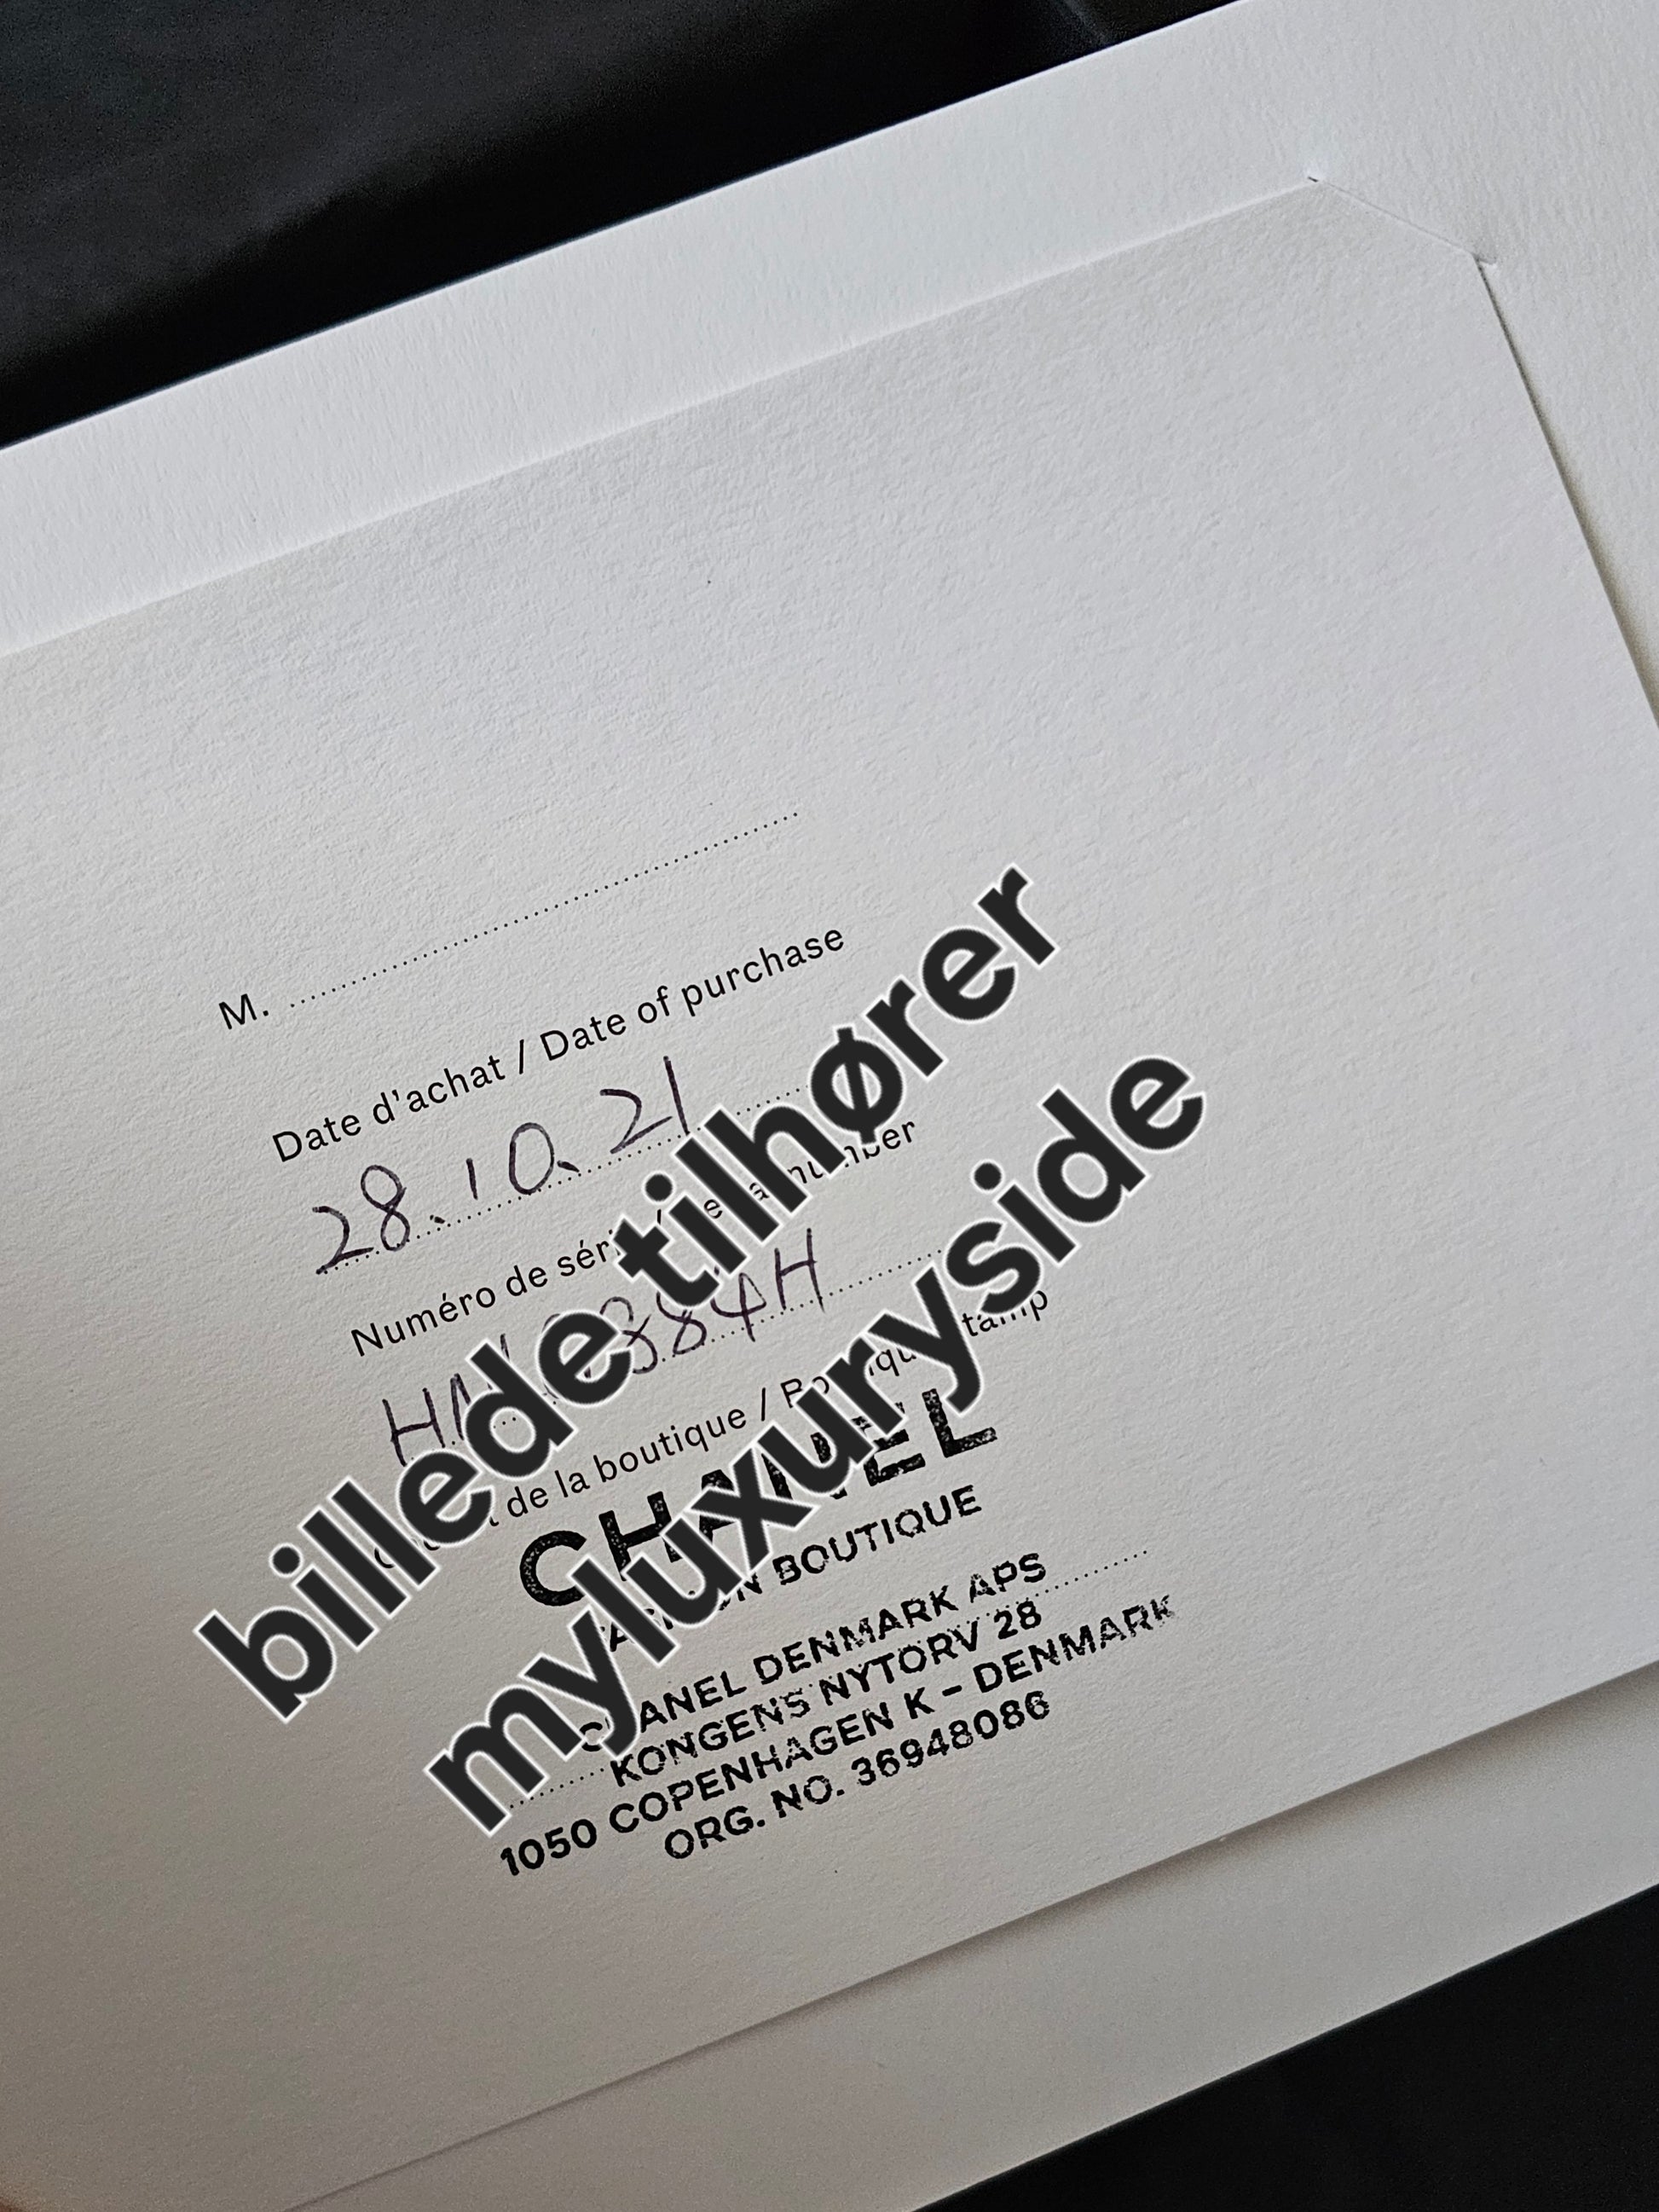 M.
Date d'achat / Date of purchase
28.10.21
Numéro de série / number
884H
de la boutique / Boutique stamp
CHANEL
BOUTIQUE
CHANEL DENMARK APS
KONGENS NYTORV 28
1050 COPENHAGEN K – DENMARK
ORG. NO. 36948086
billede tilhører
myluxuryside